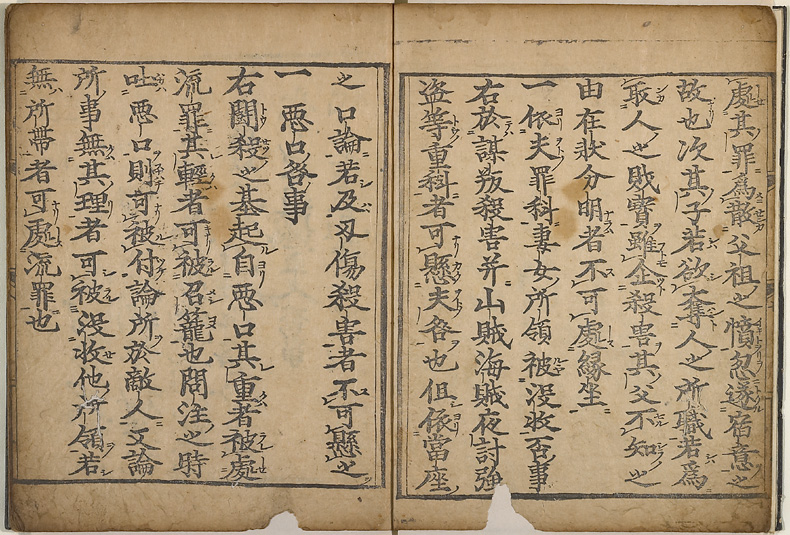 處其罪爲散父祖之憤忽遂宿意之
故也次其子若欲奪人之所職若爲
取人之賎寳雖企殺害其父不知之
由在狀分明者不可處縁坐
一依夫罪科妻女所領被没收否事
右於謀叛殺害并山賊海賊夜討強
盗等重科者可懸夫咎也但依當座
之口論若及刄傷殺害者不可懸之
一惡口咎事
右鬪殺之基起自惡口其重者被處
流罪其輕者可被召籠也問注之時
吐惡口則可被付論所於敵人又論
所事無其理者可被没收他所領若
無所帯者可處流罪也